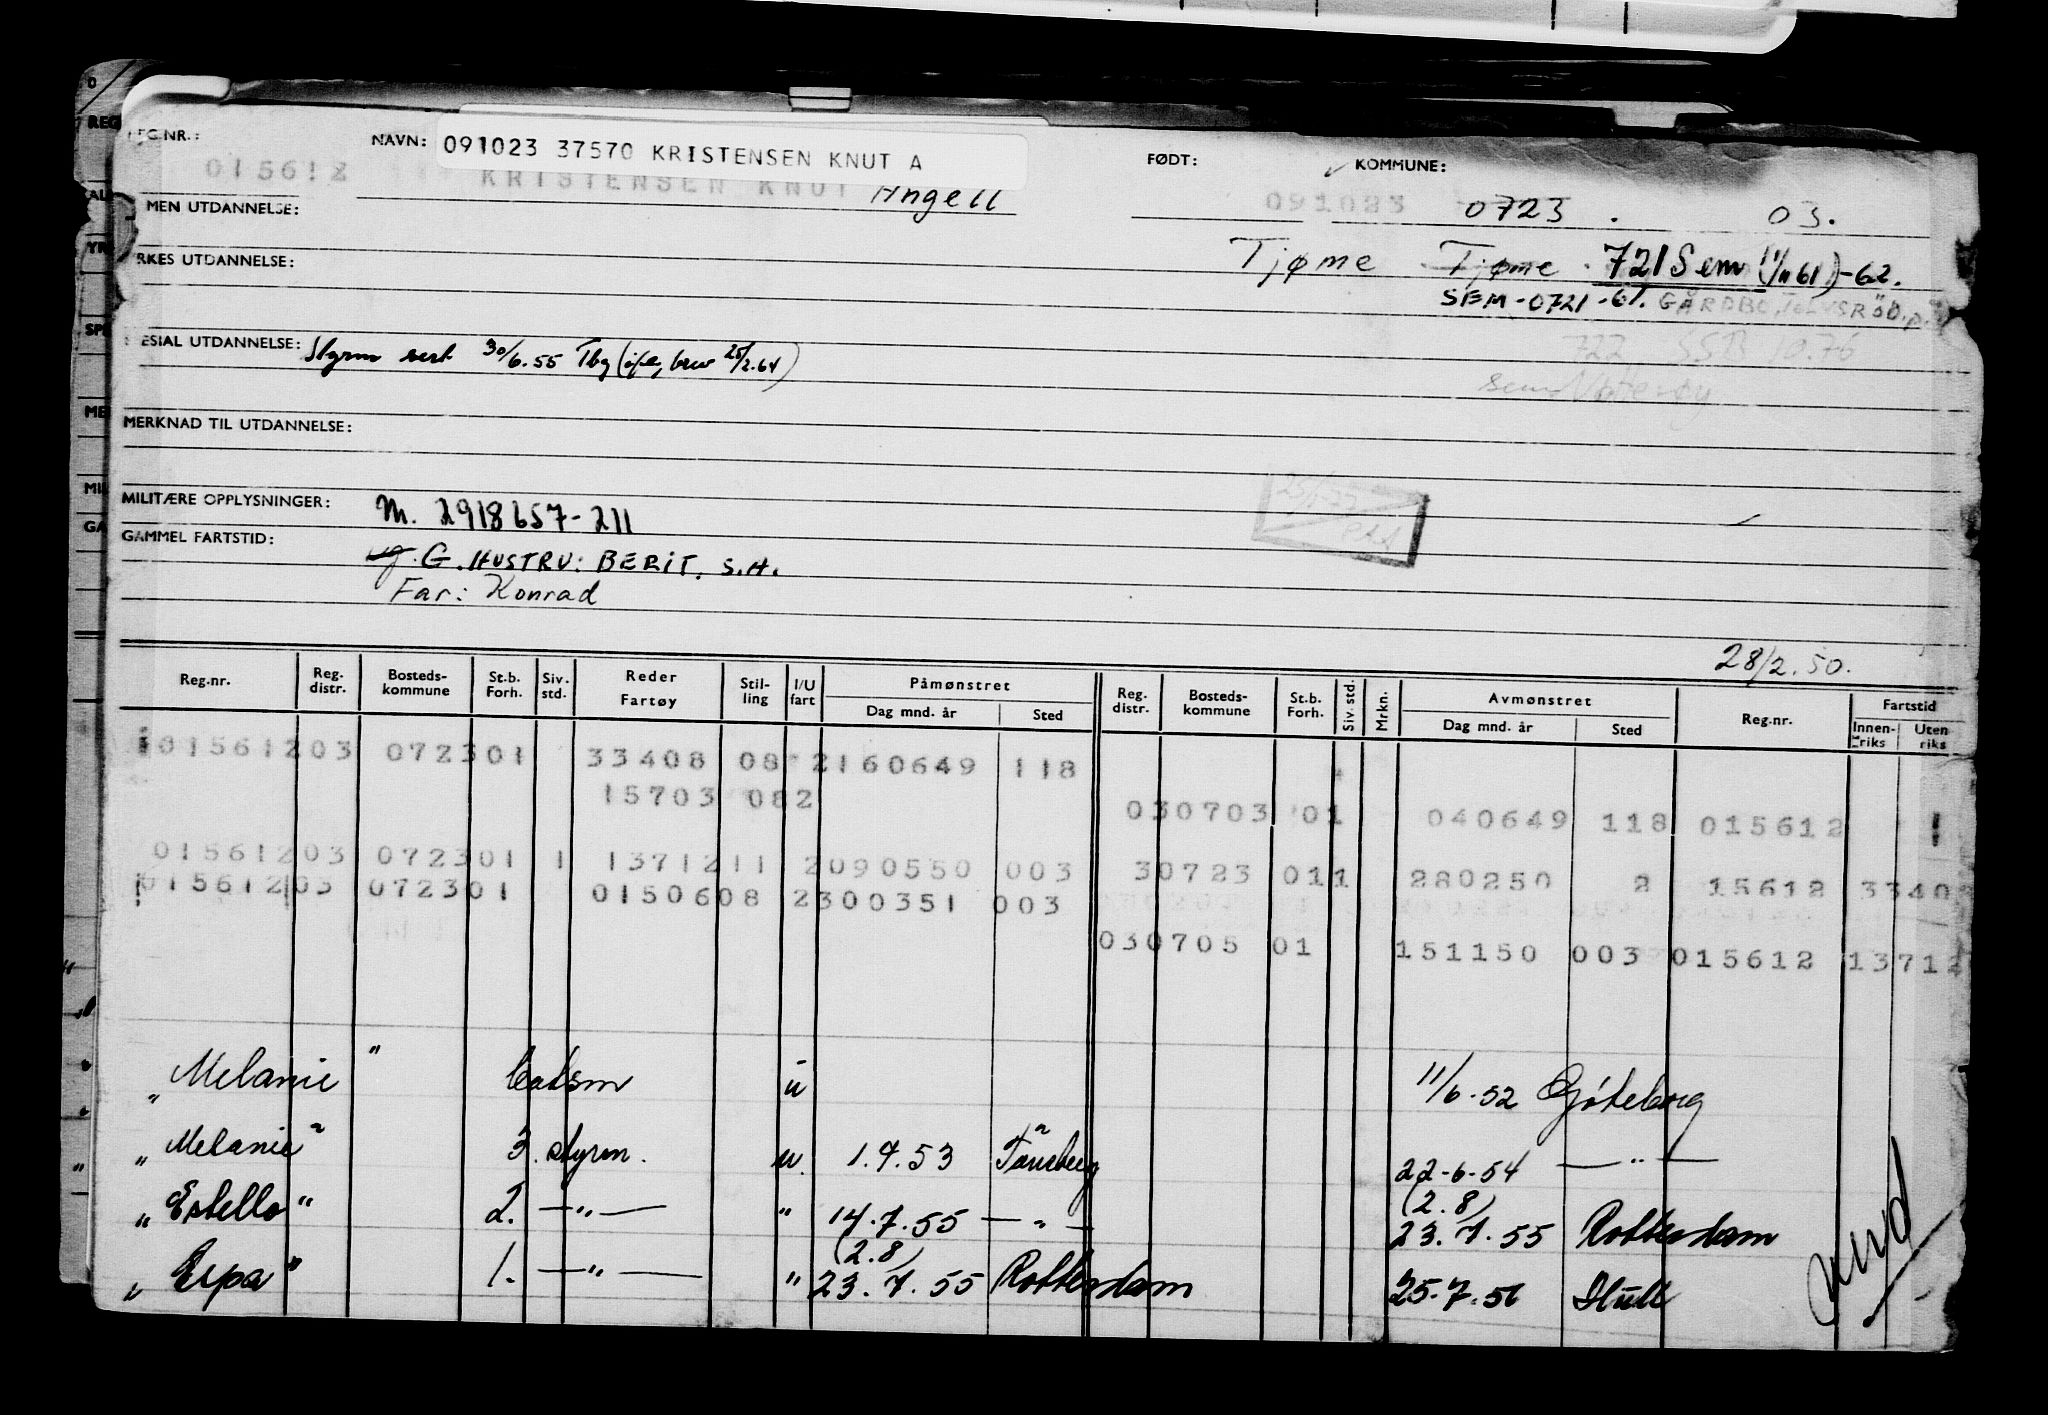 REG.NR.: NAVN: 091023 37570 KRISTENSEN KNUT A FØDT: KOMMUNE:
015612 KRISTENSEN KNUT Angell 091023 0723 . 03.
MEN UTDANNELSE:
Tjøme Tjøme . 721 Sem (1/11 61)-62.
RKES UTDANNELSE:
SEM-0721-61. GÅRDBO, TOLVSRØD,
ESIAL UTDANNELSE: Styrm sert 30/6.55 Tbg (ifl, brev 25/2.64)
722 SSB 10.76
Sem Nøtterøy
MERKNAD TIL UTDANNELSE:
MILITÆRE OPPLYSNINGER: M. 2918657-211
GAMMEL FARTSTID: ug. G. HUSTRU: BERIT. S.H.
Far: Konrad
28/2.50.
Reg.nr. Reg. distr. Bosteds- kommune St.b. Forh. Siv. std. Reder Fartøy Stil- ling I/U fart Påmønstret Dag mnd. år Sted Reg. distr. Bosteds- kommune St.b. Forh. Siv. std. Mrkn. Avmønstret Dag mnd. år Sted Reg.nr. Fartstid Innen- riks Uten riks
01561203 072301 33408 08 2160649 118
15703 082 030703 01 040649 118 015612
01561203 072301 1 1371211 2090550 003 30723 011 280250 2 15612 3340
01561203 072301 0150608 2300351 003
030705 01 151150 003 015612 13712
„Melanie" batsm u 11/6.52 Göteborg
„Melanie" 3. styrm. u. 1.7.53 Tönsberg 22-6.54 —"—
„Estello" 2. —"— " 14.7.55 —"— (2.8) 23.7.55 Rotterdam
„Erpa" 1. —"— " (2.8) 23.7.55 Rotterdam 25.7.56 Hull